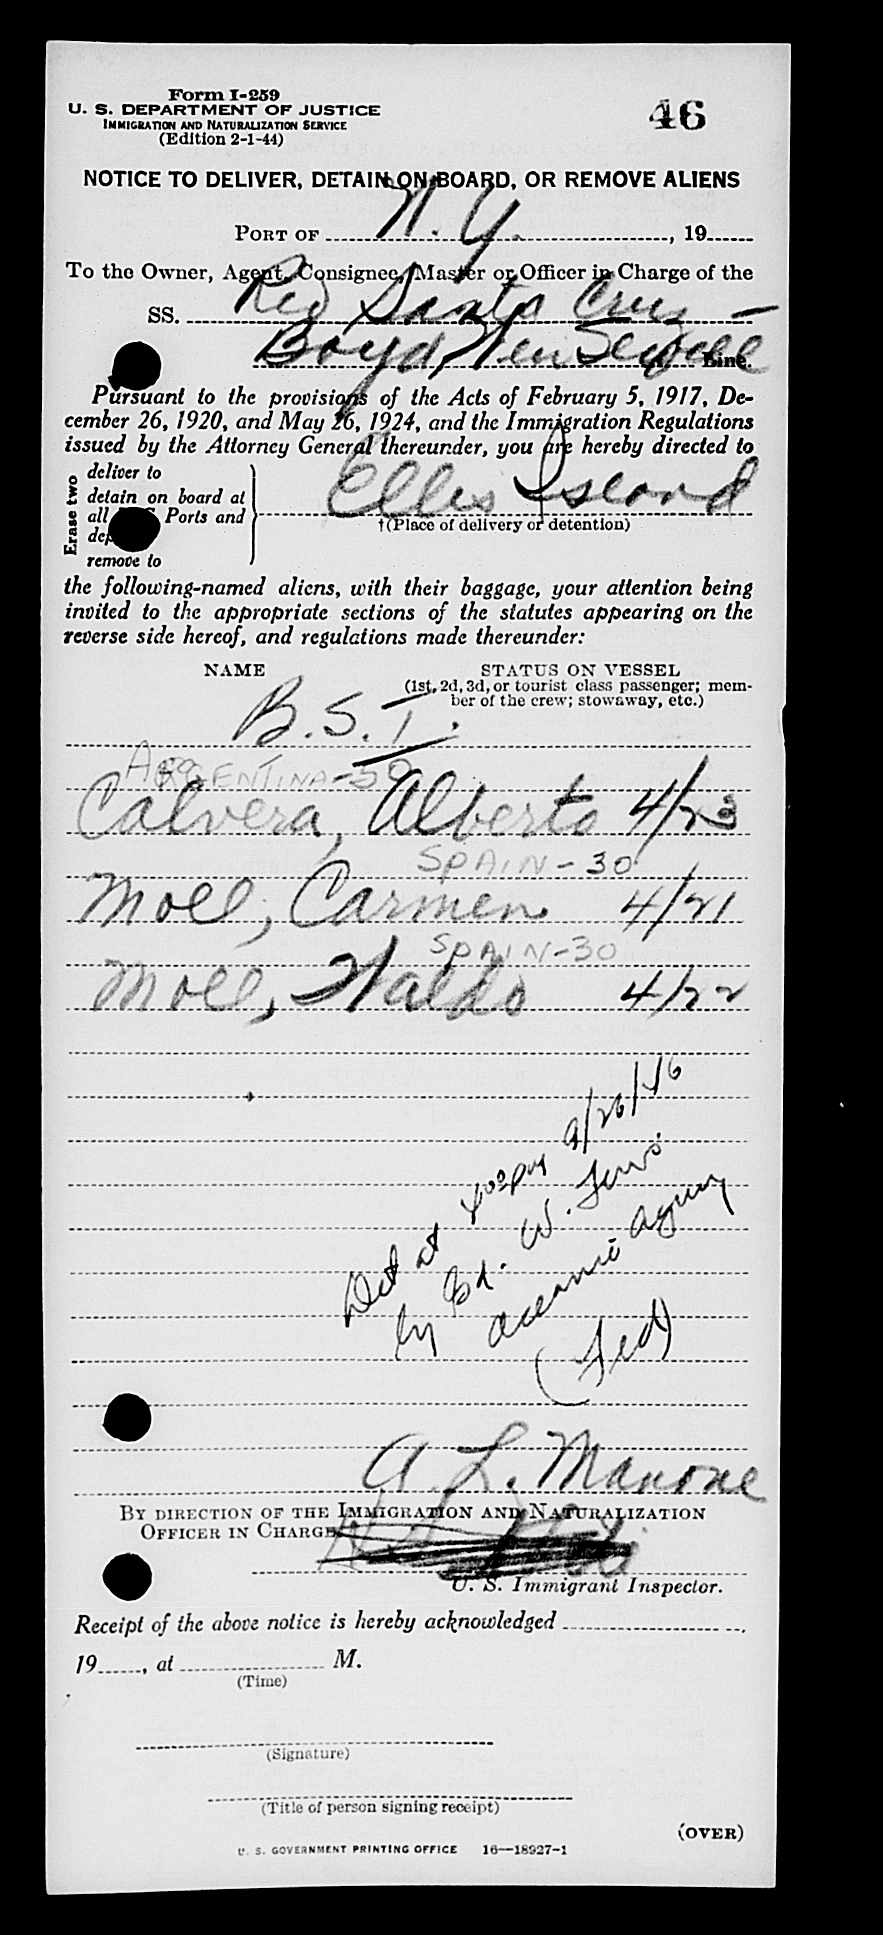 Form I-259
U. S. DEPARTMENT OF JUSTICE
IMMIGRATION AND NATURALIZATION SERVICE
(Edition 2-1-44)
46
NOTICE TO DELIVER, DETAIN ON BOARD, OR REMOVE ALIENS
PORT OF N. Y. , 19
To the Owner, Agent, Consignee, Master or Officer in Charge of the
SS. Rio Santa Cruz -
Boyd, Line.
Pursuant to the provisions of the Acts of February 5, 1917, De-
cember 26, 1920, and May 26, 1924, and the Immigration Regulations
issued by the Attorney General thereunder, you are hereby directed to
Erase two
deliver to
detain on board at
all Ports and
remove to
Ellis Island
†(Place of delivery or detention)
the following-named aliens, with their baggage, your attention being
invited to the appropriate sections of the statutes appearing on the
reverse side hereof, and regulations made thereunder:
NAME STATUS ON VESSEL
(1st, 2d, 3d, or tourist class passenger; mem-
ber of the crew; stowaway, etc.)
B. S. I.
ARGENTINA-30
Calvera, Alberto 4/23
SPAIN-30
Moll, Carmen 4/21
SPAIN-30
Moll, Waldo 4/22
Det at 9/26/46
by Ed. W.
Oceanic Agency
A. L. Manone
BY DIRECTION OF THE IMMIGRATION AND NATURALIZATION
OFFICER IN CHARGE
U. S. Immigrant Inspector.
Receipt of the above notice is hereby acknowledged ,
19 , at M.
(Time)
(Signature)
(Title of person signing receipt)
(OVER)
U. S. GOVERNMENT PRINTING OFFICE 16—18927-1